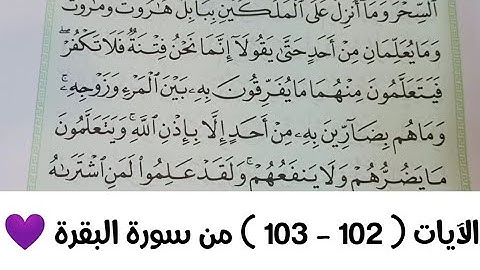 ٱلسِّحْرَ وَمَآ أُنزِلَ عَلَى ٱلْمَلَكَيْنِ بِبَابِلَ هَٰرُوتَ وَمَٰرُوتَ
وَمَا يُعَلِّمَانِ مِنْ أَحَدٍ حَتَّىٰ يَقُولَآ إِنَّمَا نَحْنُ فِتْنَةٌ فَلَا تَكْفُرْ ۖ
فَيَتَعَلَّمُونَ مِنْهُمَا مَا يُفَرِّقُونَ بِهِۦ بَيْنَ ٱلْمَرْءِ وَزَوْجِهِۦ ۚ
وَمَا هُم بِضَآرِّينَ بِهِۦ مِنْ أَحَدٍ إِلَّا بِإِذْنِ ٱللَّهِ ۚ وَيَتَعَلَّمُونَ
مَا يَضُرُّهُمْ وَلَا يَنفَعُهُمْ ۚ وَلَقَدْ عَلِمُوا۟ لَمَنِ ٱشْتَرَىٰهُ
الآيات ( 102 - 103 ) من سورة البقرة 💜